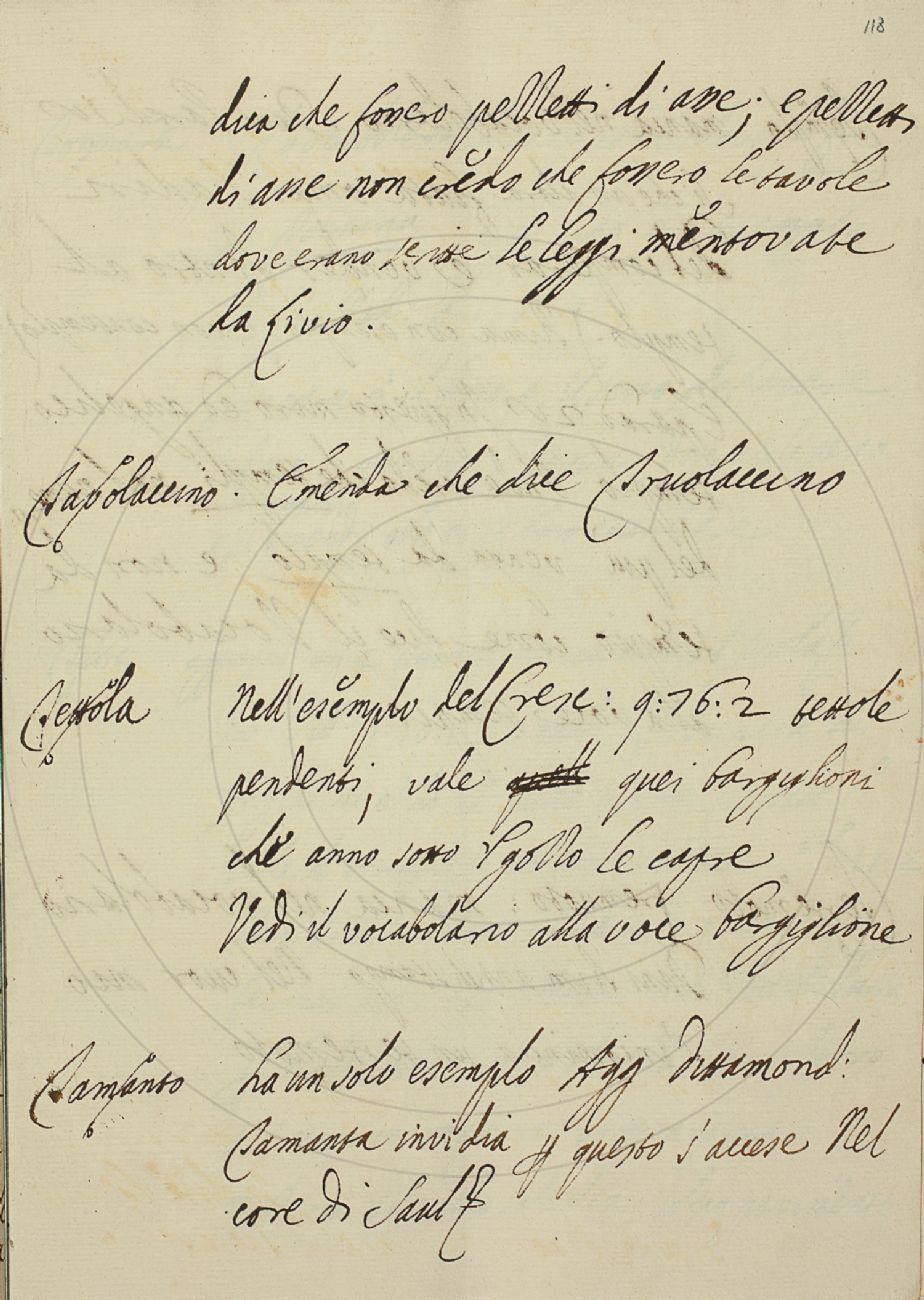 118
dica che fossero pelletti di asse; e pelletti
di asse non credo che fossero le tavole
dove erano scritte le leggi mentovate
da Livio.
Tavolaccino. Emenda che dice Truolaccino
Tettola Nell'esemplo del Cresc: 9:76:2 tettole
pendenti, vale quei bargiglioni
che anno sotto 'l gollo le capre
Vedi il vocabolario alla voce bargiglione
Tamanto ha un solo esemplo Agg Dittamond:
Tamanta invidia questo s'accese Nel
core di Saul